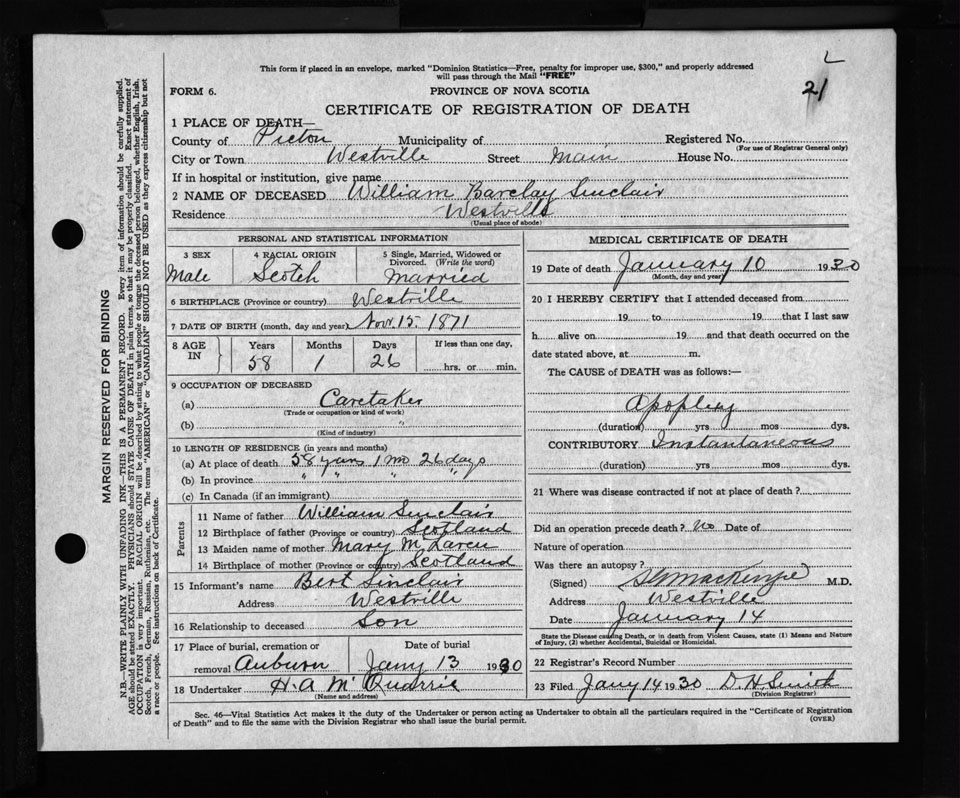 L
21
This form if placed in an envelope, marked "Dominion Statistics—Free, penalty for improper use, $300," and properly addressed
will pass through the Mail "FREE"
FORM 6.
PROVINCE OF NOVA SCOTIA
CERTIFICATE OF REGISTRATION OF DEATH
1 PLACE OF DEATH—
County of Pictou Municipality of Registered No.
(For use of Registrar General only)
City or Town Westville Street Main House No.
If in hospital or institution, give name
2 NAME OF DECEASED William Barclay Sinclair
Residence Westville
(Usual place of abode)
PERSONAL AND STATISTICAL INFORMATION
3 SEX 4 RACIAL ORIGIN 5 Single, Married, Widowed or Divorced. (Write the word)
Male Scotch Married
6 BIRTHPLACE (Province or country) Westville
7 DATE OF BIRTH (month, day and year) Nov. 15. 1871
8 AGE IN Years Months Days If less than one day,
58 1 26 hrs. or min.
9 OCCUPATION OF DECEASED
(a) Caretaker
(Trade or occupation or kind of work)
(b) "
(Kind of industry)
10 LENGTH OF RESIDENCE (in years and months)
(a) At place of death 58 years 1 mo 26 days
(b) In province " " " "
(c) In Canada (if an immigrant)
Parents
11 Name of father William Sinclair
12 Birthplace of father (Province or country) Scotland
13 Maiden name of mother Mary McLaren
14 Birthplace of mother (Province or country) Scotland
15 Informant's name Bert Sinclair
Address Westville
16 Relationship to deceased Son
17 Place of burial, cremation or Date of burial
removal Auburn Jany 13 1930
18 Undertaker H. A McQuarrie
(Name and address)
MEDICAL CERTIFICATE OF DEATH
19 Date of death January 10 1930
(Month, day and year)
20 I HEREBY CERTIFY that I attended deceased from
19 to 19 that I last saw
h alive on 19 and that death occurred on the
date stated above, at m.
The CAUSE of DEATH was as follows:—
Apoplexy
(duration) yrs mos dys.
CONTRIBUTORY Instantaneous
(duration) yrs mos dys.
21 Where was disease contracted if not at place of death?
Did an operation precede death? No Date of
Nature of operation
Was there an autopsy?
(Signed) MacKenzie M.D.
Address Westville
Date January 14
State the Disease causing Death, or in death from Violent Causes, state (1) Means and Nature
of Injury, (2) whether Accidental, Suicidal or Homicidal.
22 Registrar's Record Number
23 Filed Jany 14 1930 D. H. Smith
(Division Registrar)
Sec. 46—Vital Statistics Act makes it the duty of the Undertaker or person acting as Undertaker to obtain all the particulars required in the "Certificate of Registration
of Death" and to file the same with the Division Registrar who shall issue the burial permit.
(OVER)
MARGIN RESERVED FOR BINDING
N.B.—WRITE PLAINLY WITH UNFADING INK—THIS IS A PERMANENT RECORD. Every item of information should be carefully supplied.
AGE should be stated EXACTLY. PHYSICIANS should STATE CAUSE OF DEATH in plain terms, so that it may be properly classified. Exact statement of
OCCUPATION is very important. RACIAL ORIGIN will be described by stating to what people or tongue the deceased person belonged, whether English, Irish,
Scotch, French, German, Russian, Ruthenian, etc. The terms "AMERICAN" or "CANADIAN" SHOULD NOT BE USED as they express citizenship but not
a race or people. See instructions on back of Certificate.